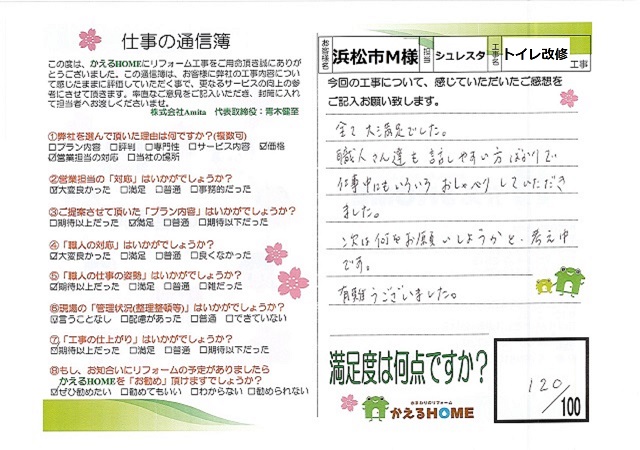 仕事の通信簿
この度は、かえるHOMEにリフォーム工事をご用命頂き誠にありが
とうございました。この通信簿は、お客様に弊社の工事内容につい
て感じたままに評価していただく事で、更なるサービスの向上の参
考にさせて頂きます。率直なご意見をご記入いただき、封筒に入れ
て担当者へお渡しくださいませ。
株式会社Amita 代表取締役：青木健至
①弊社を選んで頂いた理由は何ですか?(複数可)
□プラン内容 □評判 □専門性 □サービス内容 ☑価格
☑営業担当の対応 □当社の場所
②営業担当の「対応」はいかがでしょうか?
☑大変良かった □満足 □普通 □事務的だった
③ご提案させて頂いた「プラン内容」はいかがでしょうか?
□期待以上だった ☑満足 □普通 □期待以下だった
④「職人の対応」はいかがでしょうか?
☑大変良かった □満足 □普通 □良くなかった
⑤「職人の仕事の姿勢」はいかがでしょうか?
☑期待以上だった □満足 □普通 □雑だった
⑥現場の「管理状況(整理整頓等)」はいかがでしょうか?
☑言うことなし □配慮があった □普通 □できていない
⑦「工事の仕上がり」はいかがでしょうか?
☑期待以上だった □満足 □普通 □期待以下だった
⑧もし、お知合いにリフォームの予定がありましたら
かえるHOMEを「お勧め」頂けますでしょうか?
☑ぜひ勧めたい □勧めてもいい □わからない □勧められない
お客様名 浜松市M様 担当 シュレスタ 工事名 トイレ改修 工事
今回の工事について、感じていただいたご感想を
ご記入お願い致します。
全て大満足でした。
職人さん達も話しやすい方ばかりで
仕事中にもいろいろおしゃべりしていただき
ました。
次は何をお願いしようかと、考え中
です。
有難うございました。
満足度は何点ですか?
120/100
水まわりのリフォーム
かえるHOME